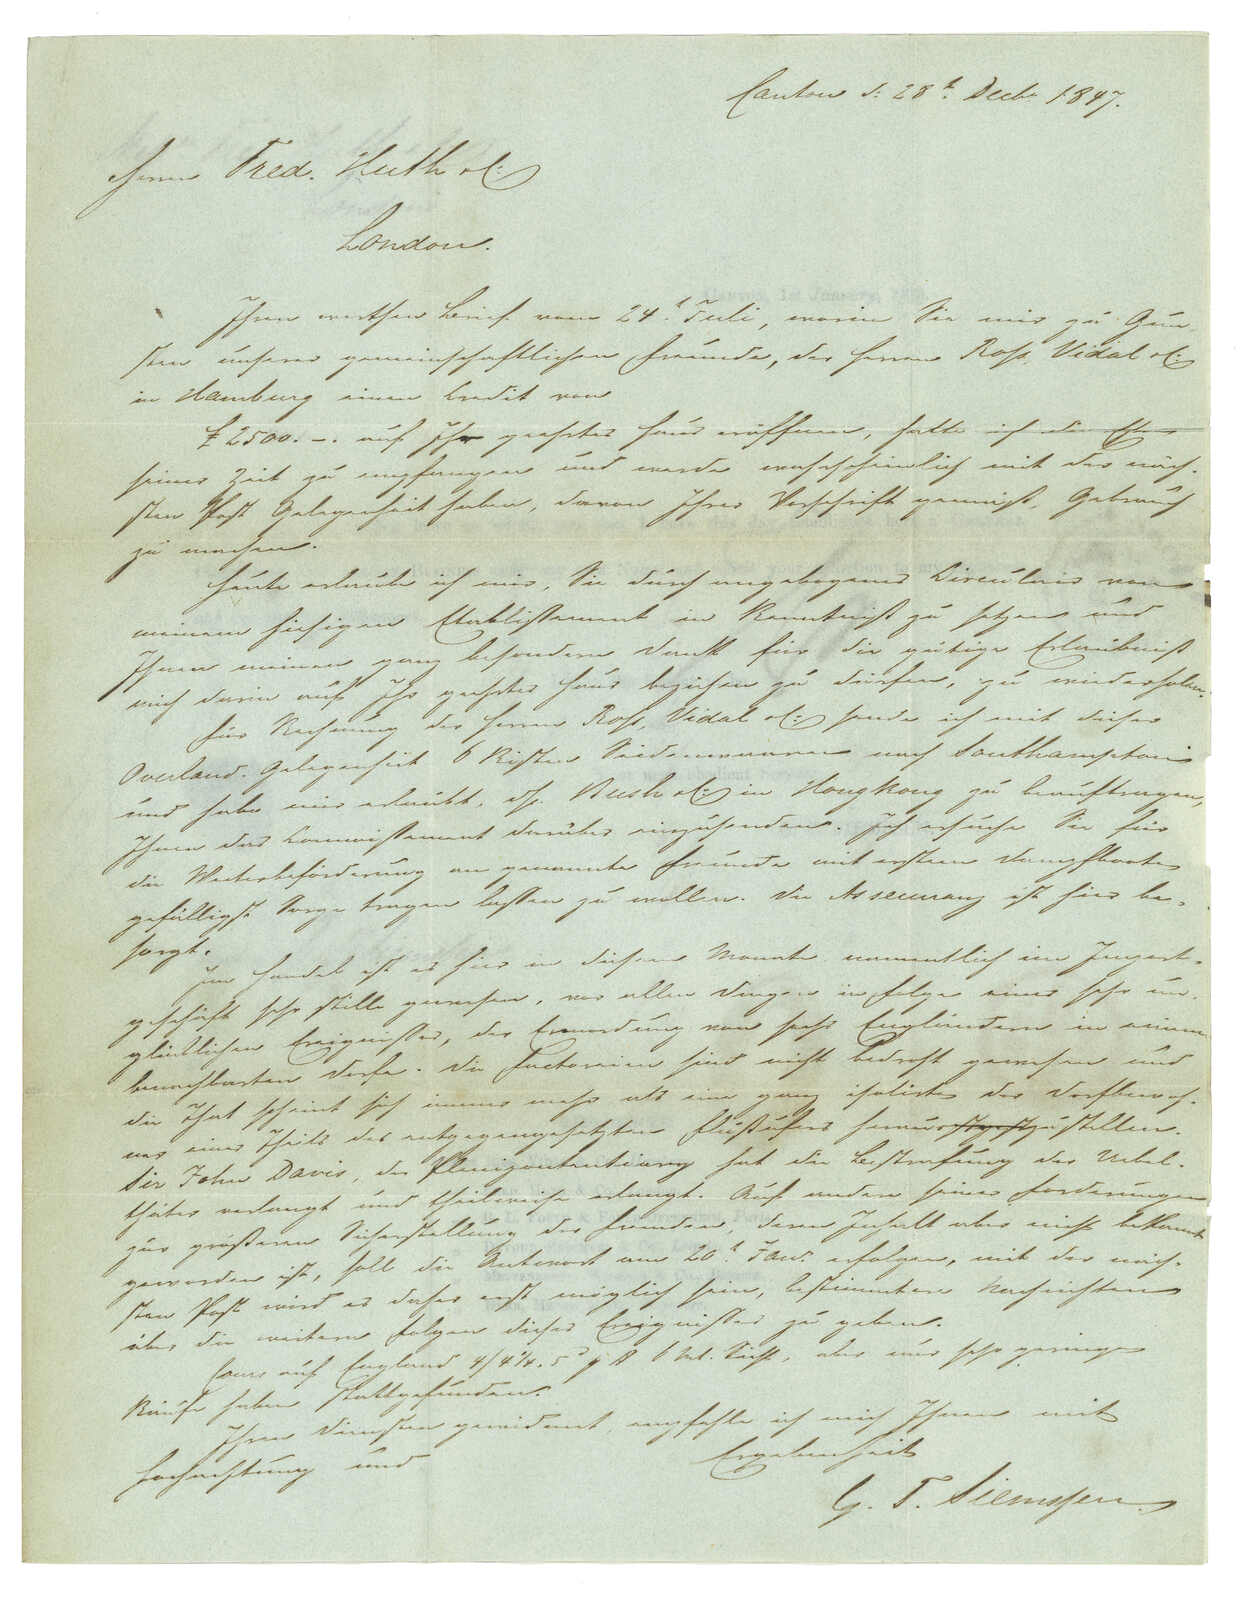 Canton d: 28t. Decbr 1847.
Herrn Fred. Huth & C:
London.
Ihren werthen Brief vom 24t. Juli, worin Sie mir zu Gun-
sten unserer gemeinschaftlichen Freunde, der Herren Ross, Vidal & C:
in Hamburg einen Credit von
£ 2500.-. auf Ihr geehrtes Haus eröffnen, hatte ich die Ehre
seiner Zeit zu empfangen und werde wahrscheinlich mit der näch-
sten Post Gelegenheit haben, davon Ihrer Vorschrift gemäß, Gebrauch
zu machen.
Heute erlaube ich mir, Sie durch angebogenes Circulair von
meinem hiesigen Etablissement in Kenntniß zu setzen und
Ihnen meinen ganz besondern Dank für die gütige Erlaubniß
mich darin auf Ihr geehrtes Haus beziehen zu dürfen, zu wiederholen.
Für Rechnung der Herren Ross, Vidal & C: sende ich mit dieser
Overland-Gelegenheit 6 Kisten Seidenwaaren nach Southampton
und habe mir erlaubt, Bush & C: in HongKong zu beauftragen,
Ihnen das Connoissement darüber einzusenden. Ich ersuche Sie für
die Weiterbeförderung an genannte Freunde mit erstem Dampfboote
gefälligst Sorge tragen lassen zu wollen. Die Assecuranz ist hier be-
sorgt.
Im Handel ist es hier in diesem Monate namentlich im Import-
geschäft sehr stille gewesen, vor allen Dingen in Folge eines sehr un-
glücklichen Ereignisses, der Ermordung von sechs Engländern in einem
benachbarten Dorfe. Die Factoreien sind nicht bedroht gewesen und
die That scheint sich immer mehr als eine ganz isolirte der Dorfbewoh-
ner eines Theils des entgegengesetzten Flußufers herauszustellen.
Sir John Davis, der Plenipotentiary hat die Bestrafung der Uebel-
thäter verlangt und theilweise erlangt. Auf andere seiner Forderungen
zur größeren Sicherstellung der Fremden, deren Inhalt aber nicht bekannt
geworden ist, soll die Antwort am 20t. Janr. erfolgen, mit der näch-
sten Post wird es daher erst möglich sein, bestimmtere Nachrichten
über die weitern Folgen dieses Ereignisses zu geben.
Cours auf England 4/4¼. 5d p $ 6 Mt. Sicht, aber nur sehr geringe
Käufe haben stattgefunden.
Ihren Diensten gewidmet, empfehle ich mich Ihnen mit
Hochachtung und Ergebenheit
G. T. Siemssen